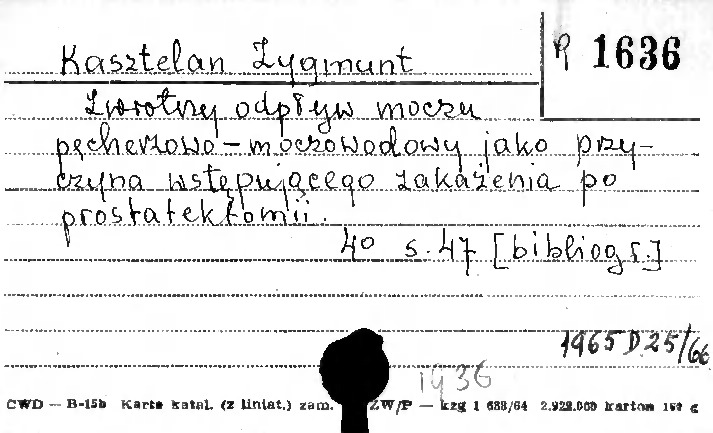 Kasztelan Zygmunt
R 1636
Zwrotny odpływ moczu
pęcherzowo-moczowodowy jako przy-
czyna wstępującego zakażenia po
prostatektomii.
40 s. 47 [bibliogr.]
1965 D 25/66
1936
CWD — B-15b Karta katal. (z liniat.) zam. ZW/P — kzg 1 688/64 2.928.000 karton